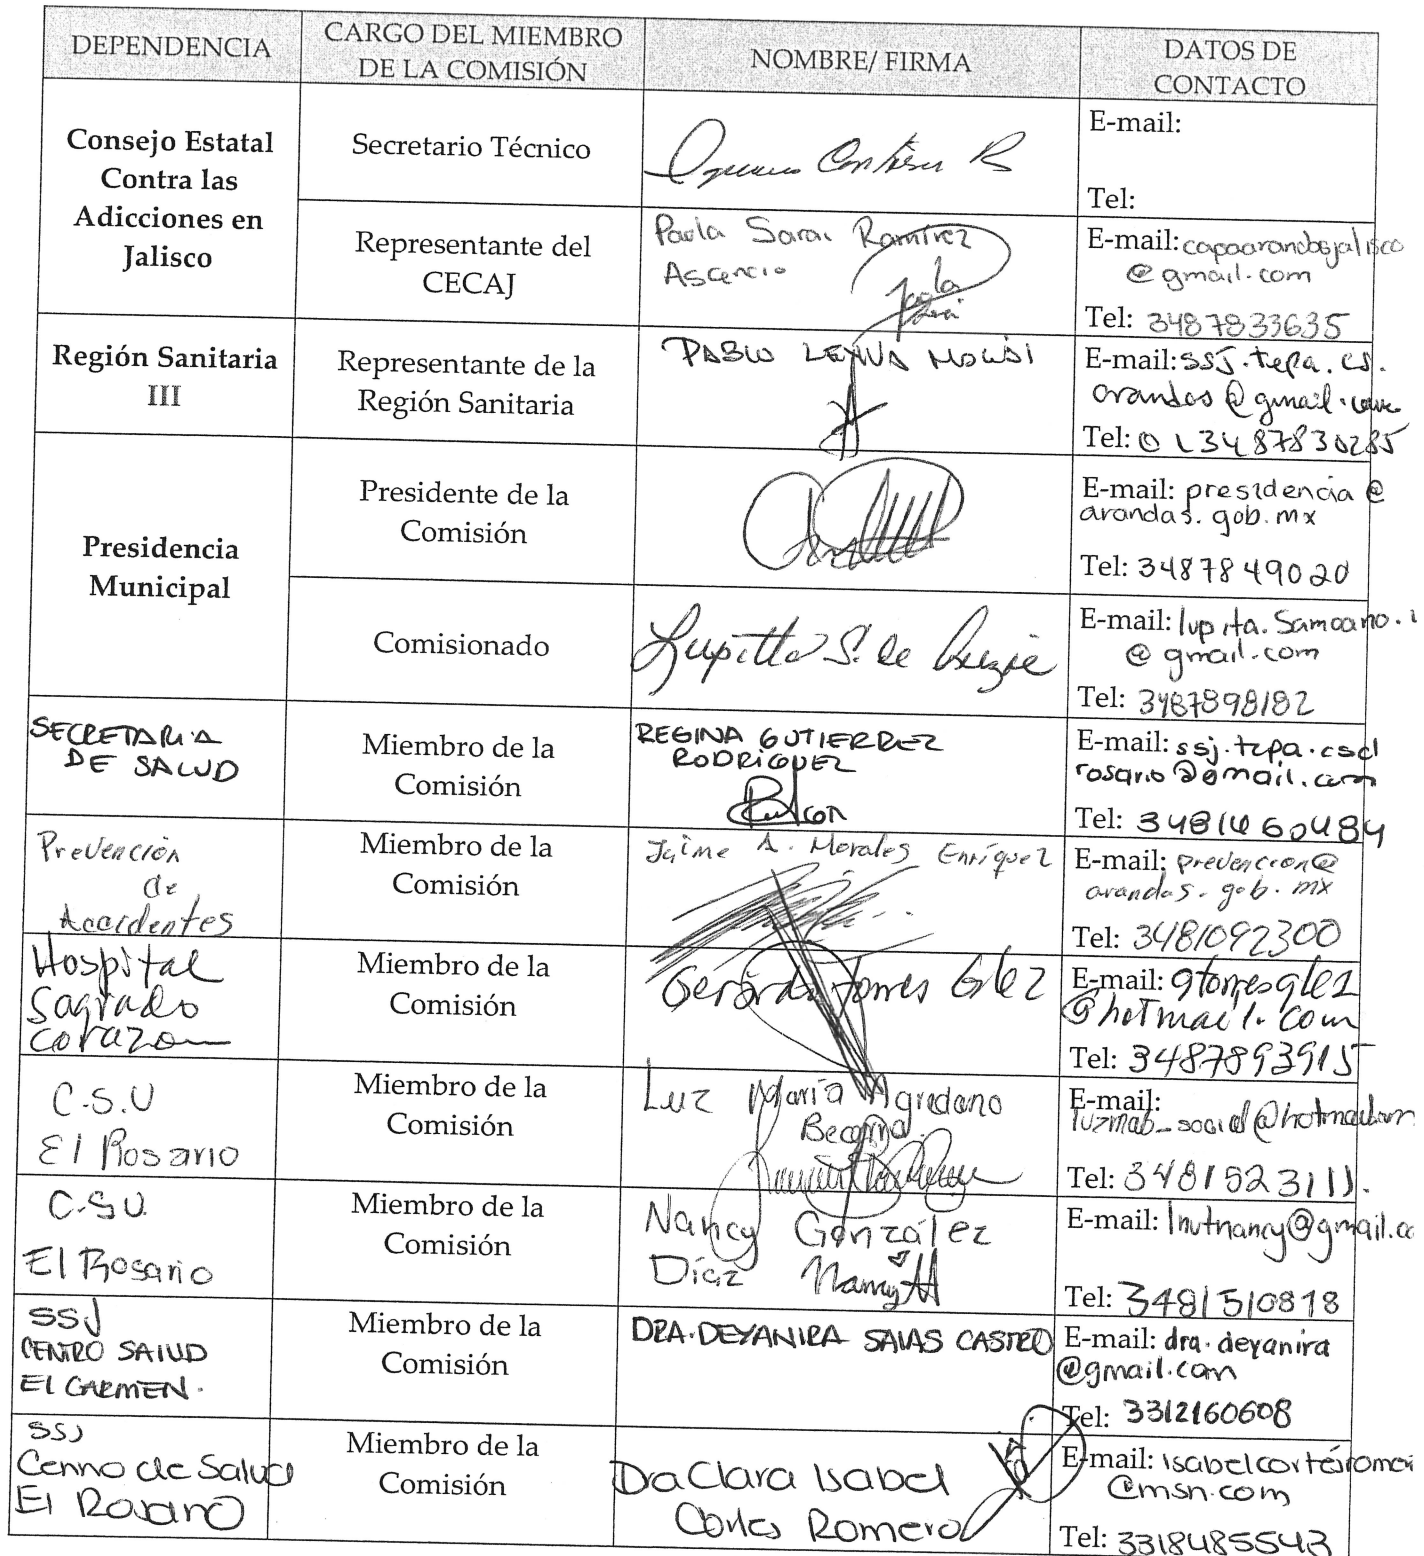 DEPENDENCIA
CARGO DEL MIEMBRO
DE LA COMISIÓN
NOMBRE/ FIRMA
DATOS DE
CONTACTO
Consejo Estatal
Contra las
Adicciones en
Jalisco
Secretario Técnico
E-mail:
Tel:
Representante del
CECAJ
Paola Sarai Ramírez
Ascencio
E-mail:
@gmail.com
Tel: 3487833635
Región Sanitaria
III
Representante de la
Región Sanitaria
PABLO LEYVA
E-mail: ssj.tepa.cs.
arandas@gmail.com
Tel: 013487830285
Presidencia
Municipal
Presidente de la
Comisión
E-mail: presidencia@
arandas.gob.mx
Tel: 3487849020
Comisionado
Lupitta S. de
E-mail: lupita.Samoano.
@gmail.com
Tel: 3487898182
SECRETARIA
DE SALUD
Miembro de la
Comisión
REGINA GUTIERREZ
RODRIGUEZ
E-mail: ssj.tepa.cscl
rosario@gmail.com
Tel: 3481460484
Prevención
de
Accidentes
Miembro de la
Comisión
Jaime A. Morales Enríquez
E-mail: prevencion@
arandas.gob.mx
Tel: 3481092300
Hospital
Sagrado
Corazon
Miembro de la
Comisión
Gerardo Torres Glez
E-mail: gtorresglez
@hotmail.com
Tel: 3487893915
C.S.U
El Rosario
Miembro de la
Comisión
Luz María Agredano
Becerra
E-mail:
luzmab_social@hotmail.com
Tel: 3481523111.
C.S.U.
El Rosario
Miembro de la
Comisión
Nancy González
Díaz Nancy
E-mail: lnutnancy@gmail.co
Tel: 3481510818
SSJ
CENTRO SALUD
El CARMEN.
Miembro de la
Comisión
DRA. DEYANIRA SALAS CASTRO
E-mail: dra.deyanira
@gmail.com
Tel: 3312160608
SSJ
Centro de Salud
El Rosario
Miembro de la
Comisión
Dra Clara Isabel
Cortes Romero
E-mail: isabelcortésromer
@msn.com
Tel: 3318485543